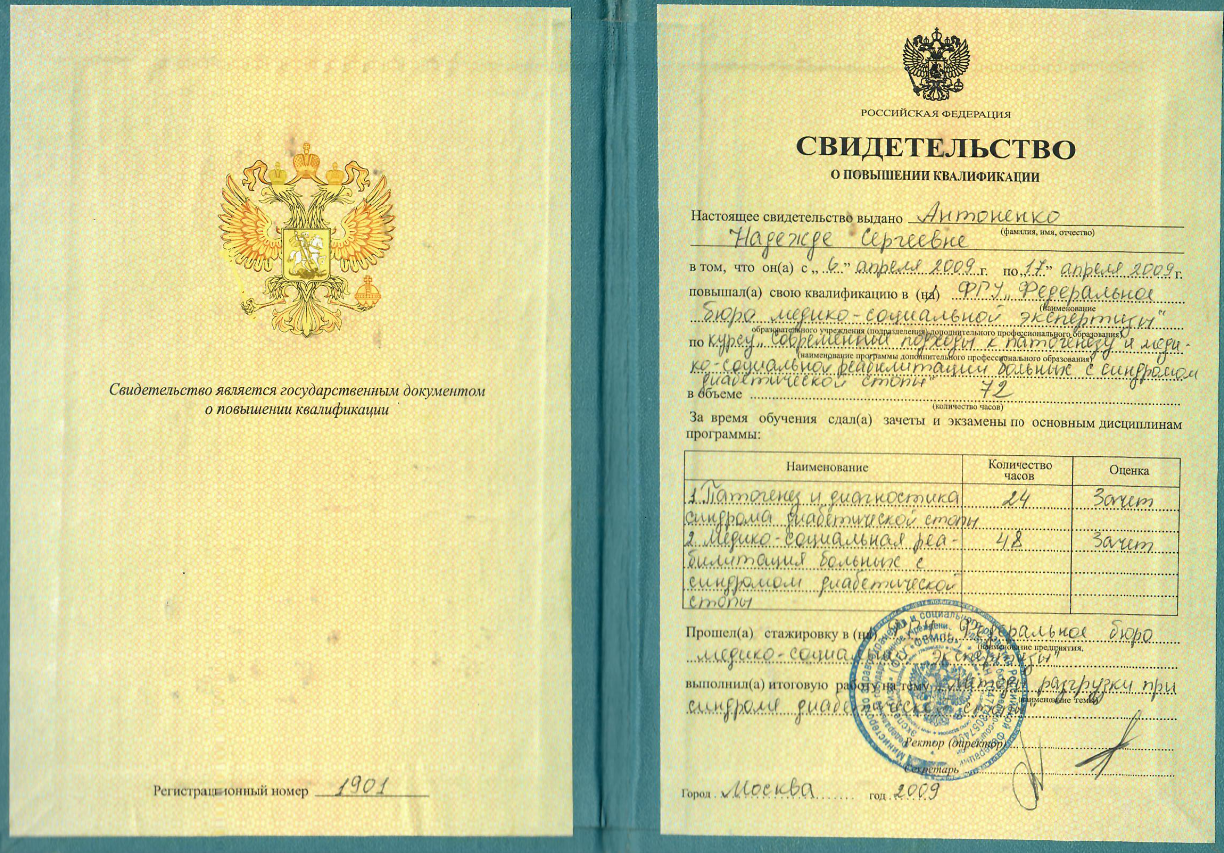 Свидетельство является государственным документом
о повышении квалификации
Регистрационный номер 1901
РОССИЙСКАЯ ФЕДЕРАЦИЯ
СВИДЕТЕЛЬСТВО
О ПОВЫШЕНИИ КВАЛИФИКАЦИИ
Настоящее свидетельство выдано Антоненко
(фамилия, имя, отчество)
Надежде Сергеевне
в том, что он(а) с „ 6 ” апреля 2009 г. по „ 17 ” апреля 2009 г.
повышал(а) свою квалификацию в (на) ФГУ „Федеральное
(наименование
бюро медико-социальной экспертизы"
образовательного учреждения (подразделения) дополнительного профессионального образования)
по курсу „Современный подходы к патогенезу и меди-
(наименование программы дополнительного профессионального образования)
ко-социальной реабилитации больных с синдромом
диабетической стопы"
в объеме 72
(количество часов)
За время обучения сдал(а) зачеты и экзамены по основным дисциплинам
программы:
Наименование Количество часов Оценка
1 Патогенез и диагностика 24 Зачет
синдрома диабетической стопы
2 Медико-социальная реа- 48 Зачет
билитация больных с
синдромом диабетической
стопы
Прошел(а) стажировку в (на) Федеральное бюро
(наименование предприятия,
медико-социальной экспертизы"
выполнил(а) итоговую работу на тему Методы разгрузки при
(наименование темы)
синдроме диабетической стопы
Ректор (директор)
Секретарь
Город Москва год 2009